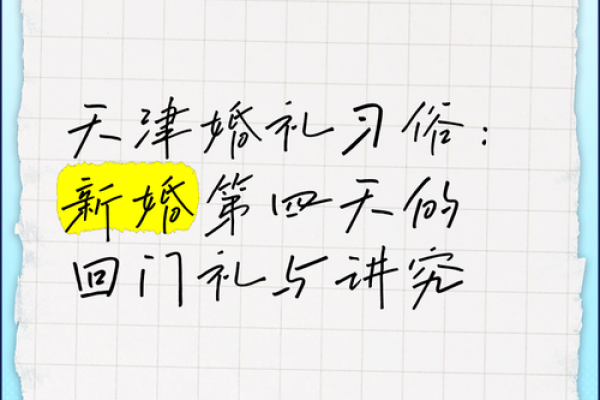 天津婚礼习俗：
新婚第四天的
回门礼与讲究